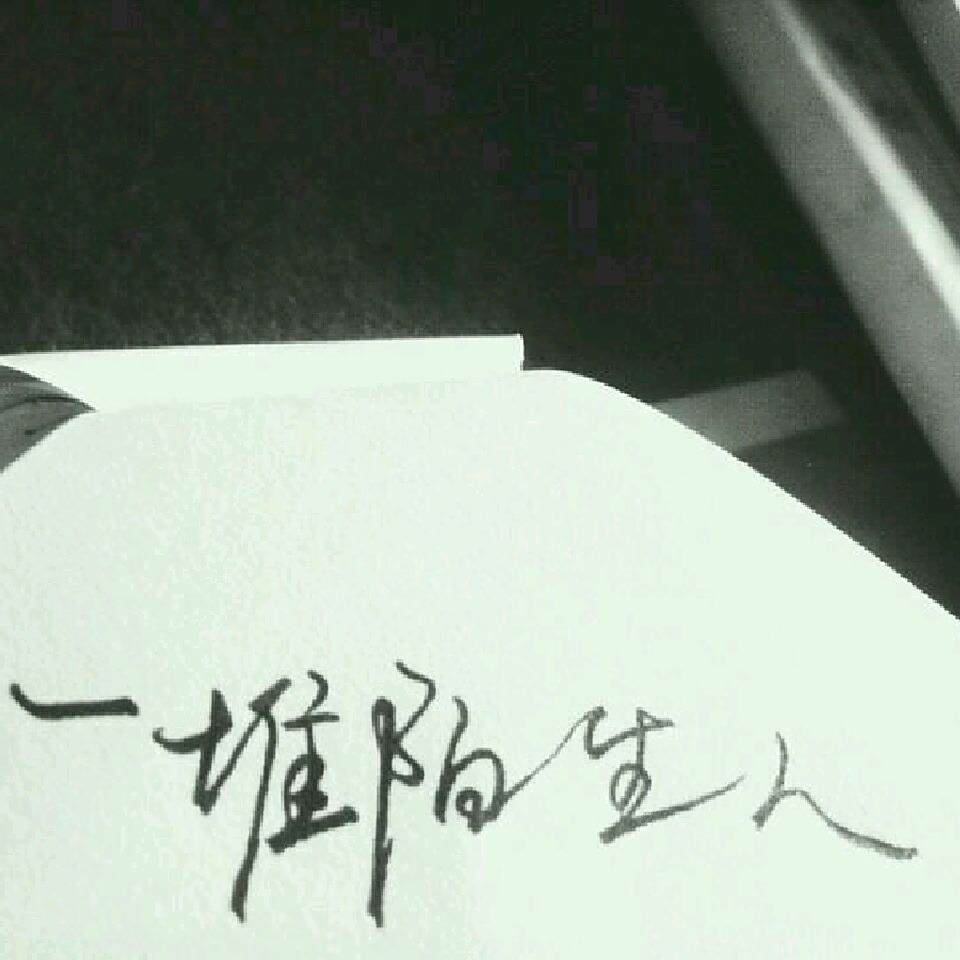 一堆陌生人